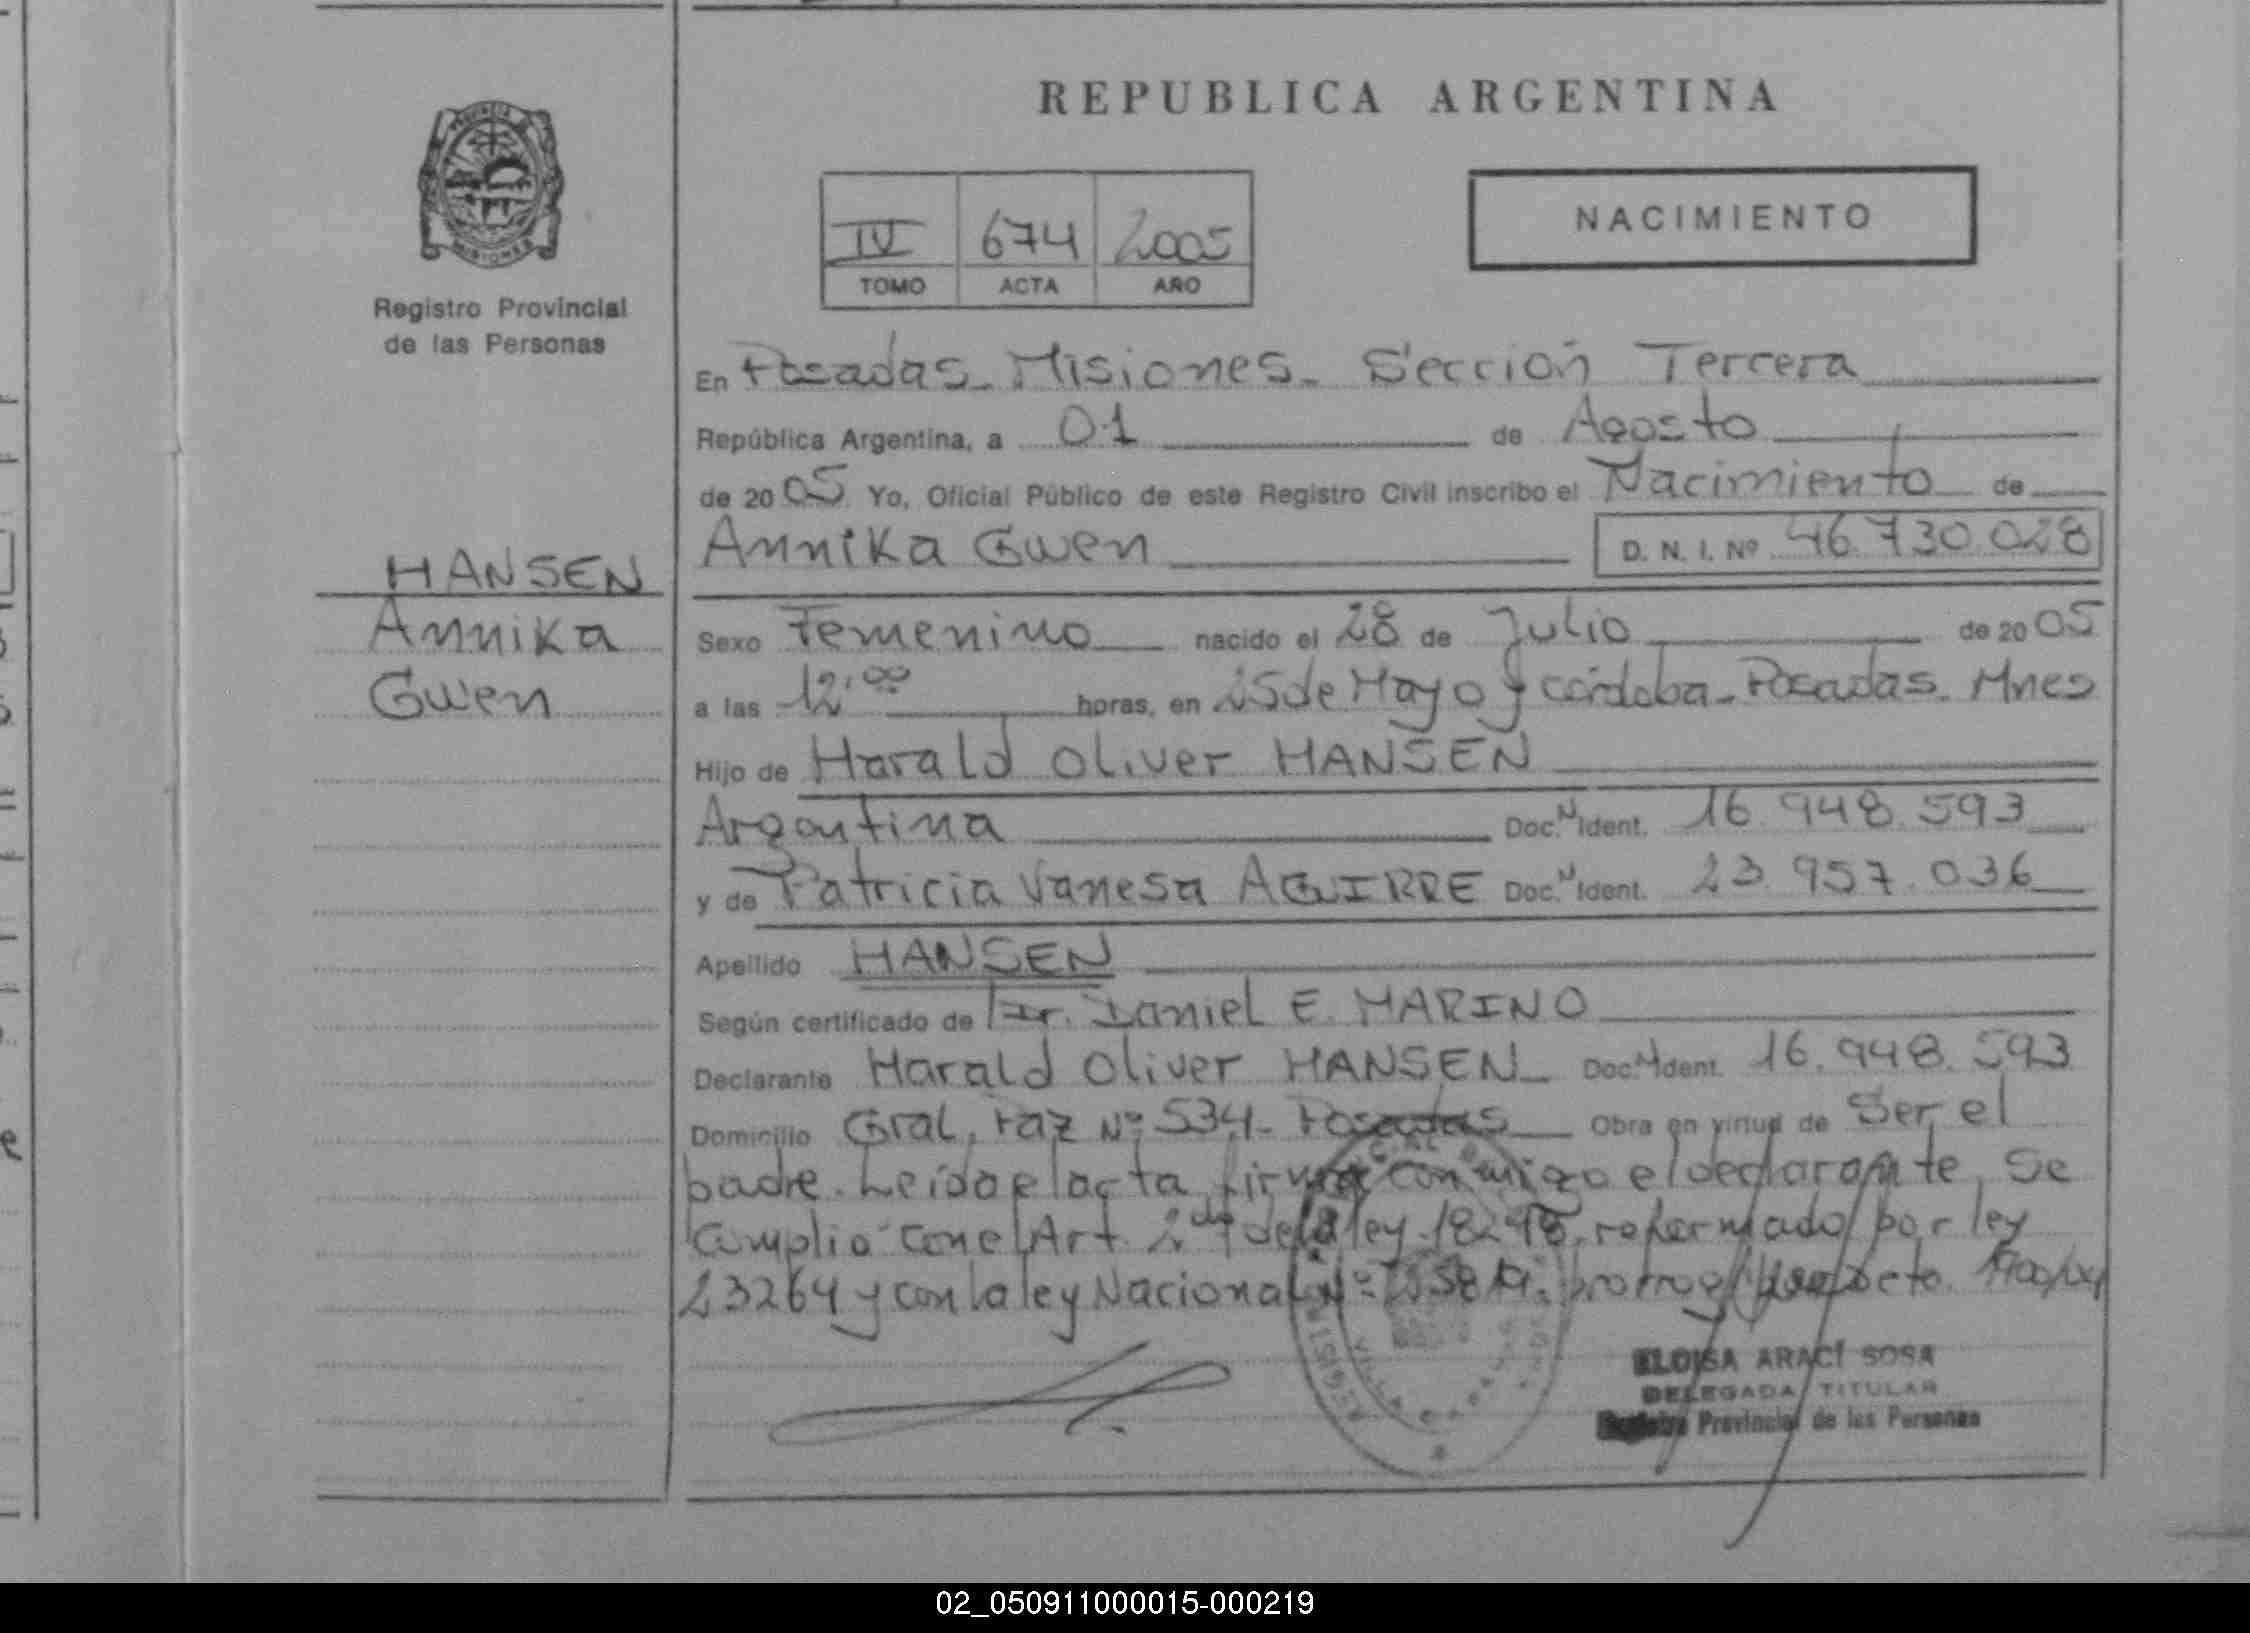 REPUBLICA ARGENTINA
IV 674 2005
TOMO ACTA AÑO
NACIMIENTO
Registro Provincial
de las Personas
HANSEN
Annika
Gwen
En Posadas - Misiones - Sección Tercera
República Argentina, a 01 de Agosto
de 2005 Yo, Oficial Público de este Registro Civil inscribo el Nacimiento de
Annika Gwen D. N. I. Nº 46.730.028
Sexo Femenino nacido el 28 de Julio de 2005
a las 12:00 horas, en 25 de Mayo y córdoba - Posadas - Mnes
Hijo de Harald Oliver HANSEN
Argentina Doc. N Ident. 16.948.593
y de Patricia Vanesa AGUIRRE Doc. N Ident. 23.957.036
Apellido HANSEN
Según certificado de Dr. Daniel E. MARINO
Declarante Harald Oliver HANSEN Doc. N Ident. 16.948.593
Domicilio Gral. Paz Nº 534 - Posadas Obra en virtud de Ser el
padre. Leída el acta, firma conmigo el declarante, Se
Cumplió con el Art. 2do de la ley 18248, reformado por ley
23264 y con la ley Nacional Nº
ELOISA ARACÍ SOSA
DELEGADA TITULAR
Registro Provincial de las Personas
02_050911000015-000219